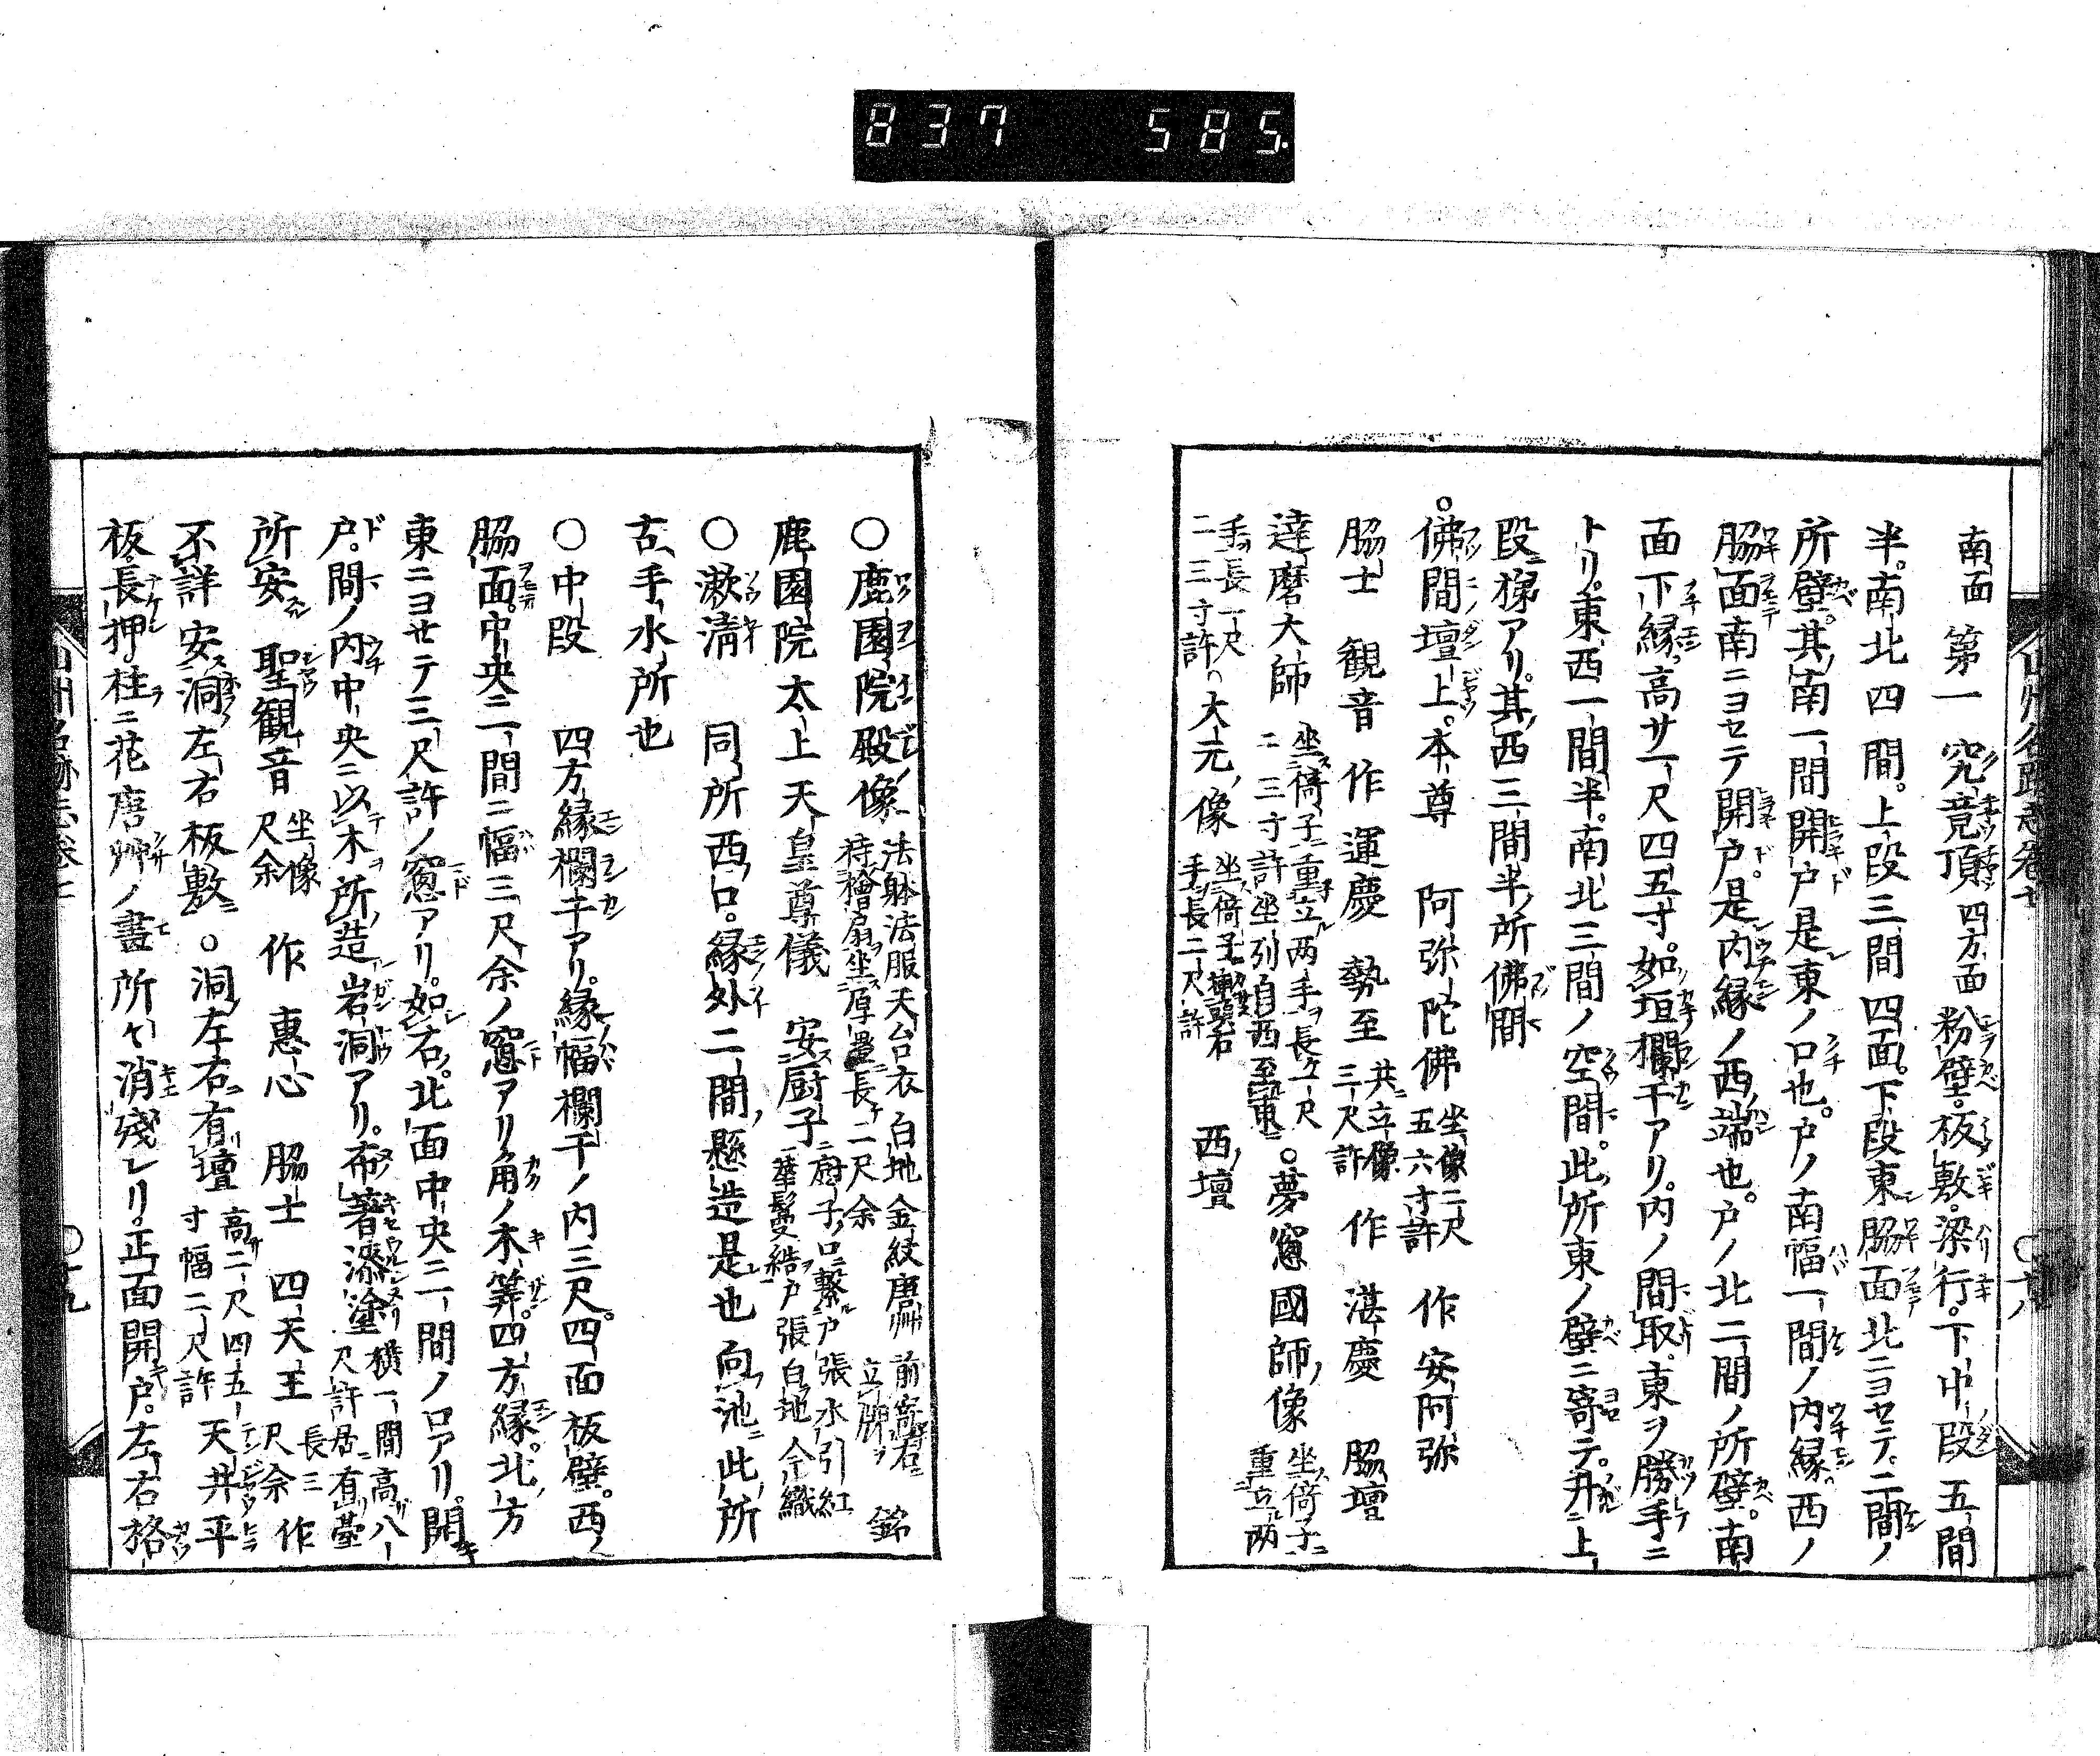 837 585.
南面 第一 究竟頂 四方面 粉壁。板敷。梁行。下中段五間
半。南北四間。上段三間四面。下段東脇面北ニヨセテ。二間ノ
所壁。其南一間開戸是東ノ口也。戸ノ南幅一間ノ内縁。西ノ
脇面南ニヨセテ開戸。是内縁ノ西端也。戸ノ北二間ノ所壁。南
面下縁高サ一尺四五寸。如垣欄干アリ。内ノ間取東ヲ勝手ニ
トリ。東西一間半。南北三間ノ空間。此所東ノ壁ニ寄テ。升上
段梯アリ。其西三間半所佛間
○佛間壇上。本尊 阿弥陀佛 坐像二尺五六寸許 作安阿弥
脇士 観音作運慶 勢至 共立像三尺許 作 湛慶 脇壇
達磨大師 坐倚子重立両手ヲ長ケ一尺二三寸許坐列自西至東 ○夢窓國師像 坐倚子重立両
手長一尺二三寸許 大元像 坐倚子手長二尺許 西壇
○鹿園院殿像 法躰法服天台衣白地金紋唐艸持檜扇坐厚疊長ケ二尺余 前立牌ヲ 銘
鹿園院太上天皇尊儀 安厨子 厨子口繋戸張水引紅華鬘結戸張白地今織
○漱清 同所西口。縁外二間懸造是也向池此所
古手水所也
○中段 四方縁欄干アリ。縁幅欄干ノ内三尺。四面板壁。西ノ
脇面。中央二間ニ幅三尺余ノ窓アリ角ノ木筭。四方縁。北方
東ニヨセテ三尺許ノ窓アリ。如右。北面中央二間ノ口アリ。開
戸。間ノ内中央ニ以木所造岩洞アリ。布著漆塗 横一間高八尺許居有臺
所安 聖観音 坐像尺余 作 惠心 脇士 四天王 長三尺余 作
不詳安洞左右板敷 ○洞左右有壇 高二尺四五寸幅二尺許 天井平
板。長押。柱ニ花唐艸ノ畫所々消残レリ。正面開戸。左右格